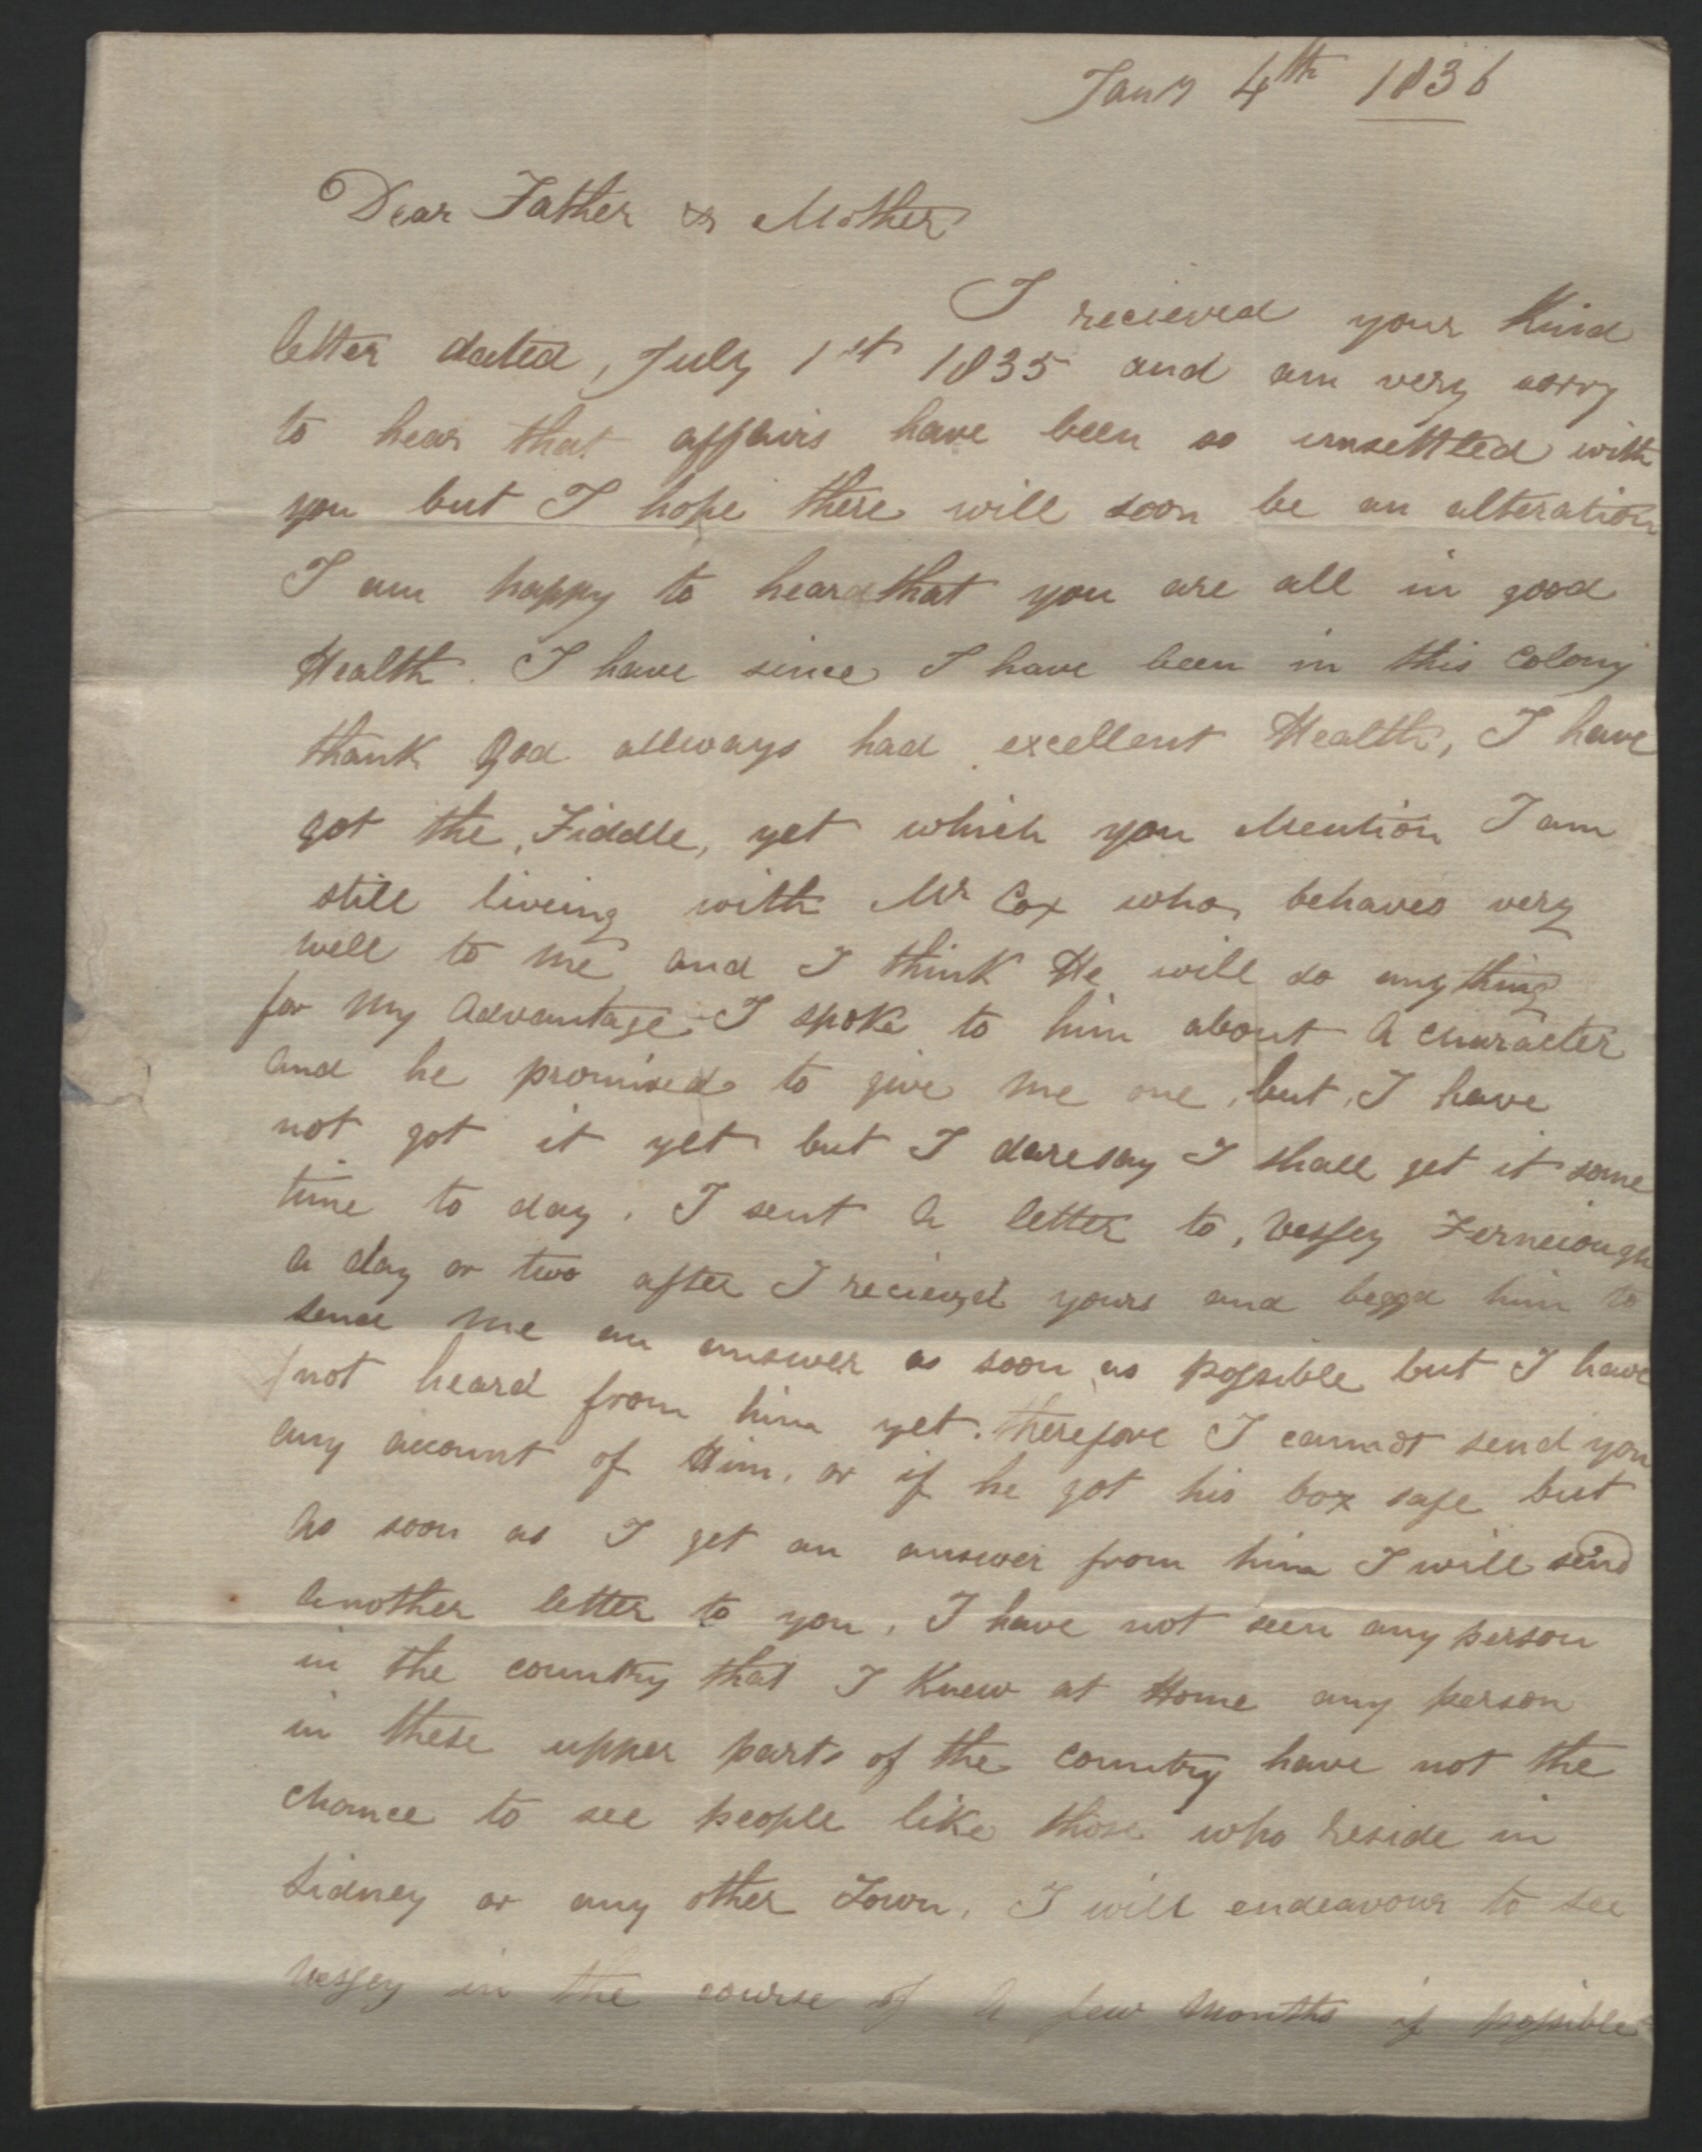 Jany 4th 1836
Dear Father & Mother
I recieved your Kind
letter dated, July 1st 1835 and am very sorry
to hear that affairs have been so unsettled with
you but I hope there will soon be an alteration
I am happy to hear that you are all in good
Health. I have since I have been in this Colony
thank God allways had excellent Health, I have
got the, Fiddle, yet which you Mention I am
still liveing with Mr Cox who behaves very
well to me and I think He will do any thing
for My Advantage I spoke to him about A character
And he promised to give Me one, but, I have
not got it yet but I daresay I shall get it some
time to day. I sent A letter to, Vessey Ferneiough
A day or two after I recieved yours and beggd him to
send Me an answer as soon as possible but I have
not heard from him yet. therefore I cannot send you
any account of Him. or if he got his box safe but
As soon as I get an answer from him I will send
Another letter to you. I have not seen any person
in the country that I Knew at Home any person
in these upper parts of the Country have not the
Chance to see people like those who reside in
Sidney or any other Town. I will endeavour to see
Vessey in the course of A few Months if possible